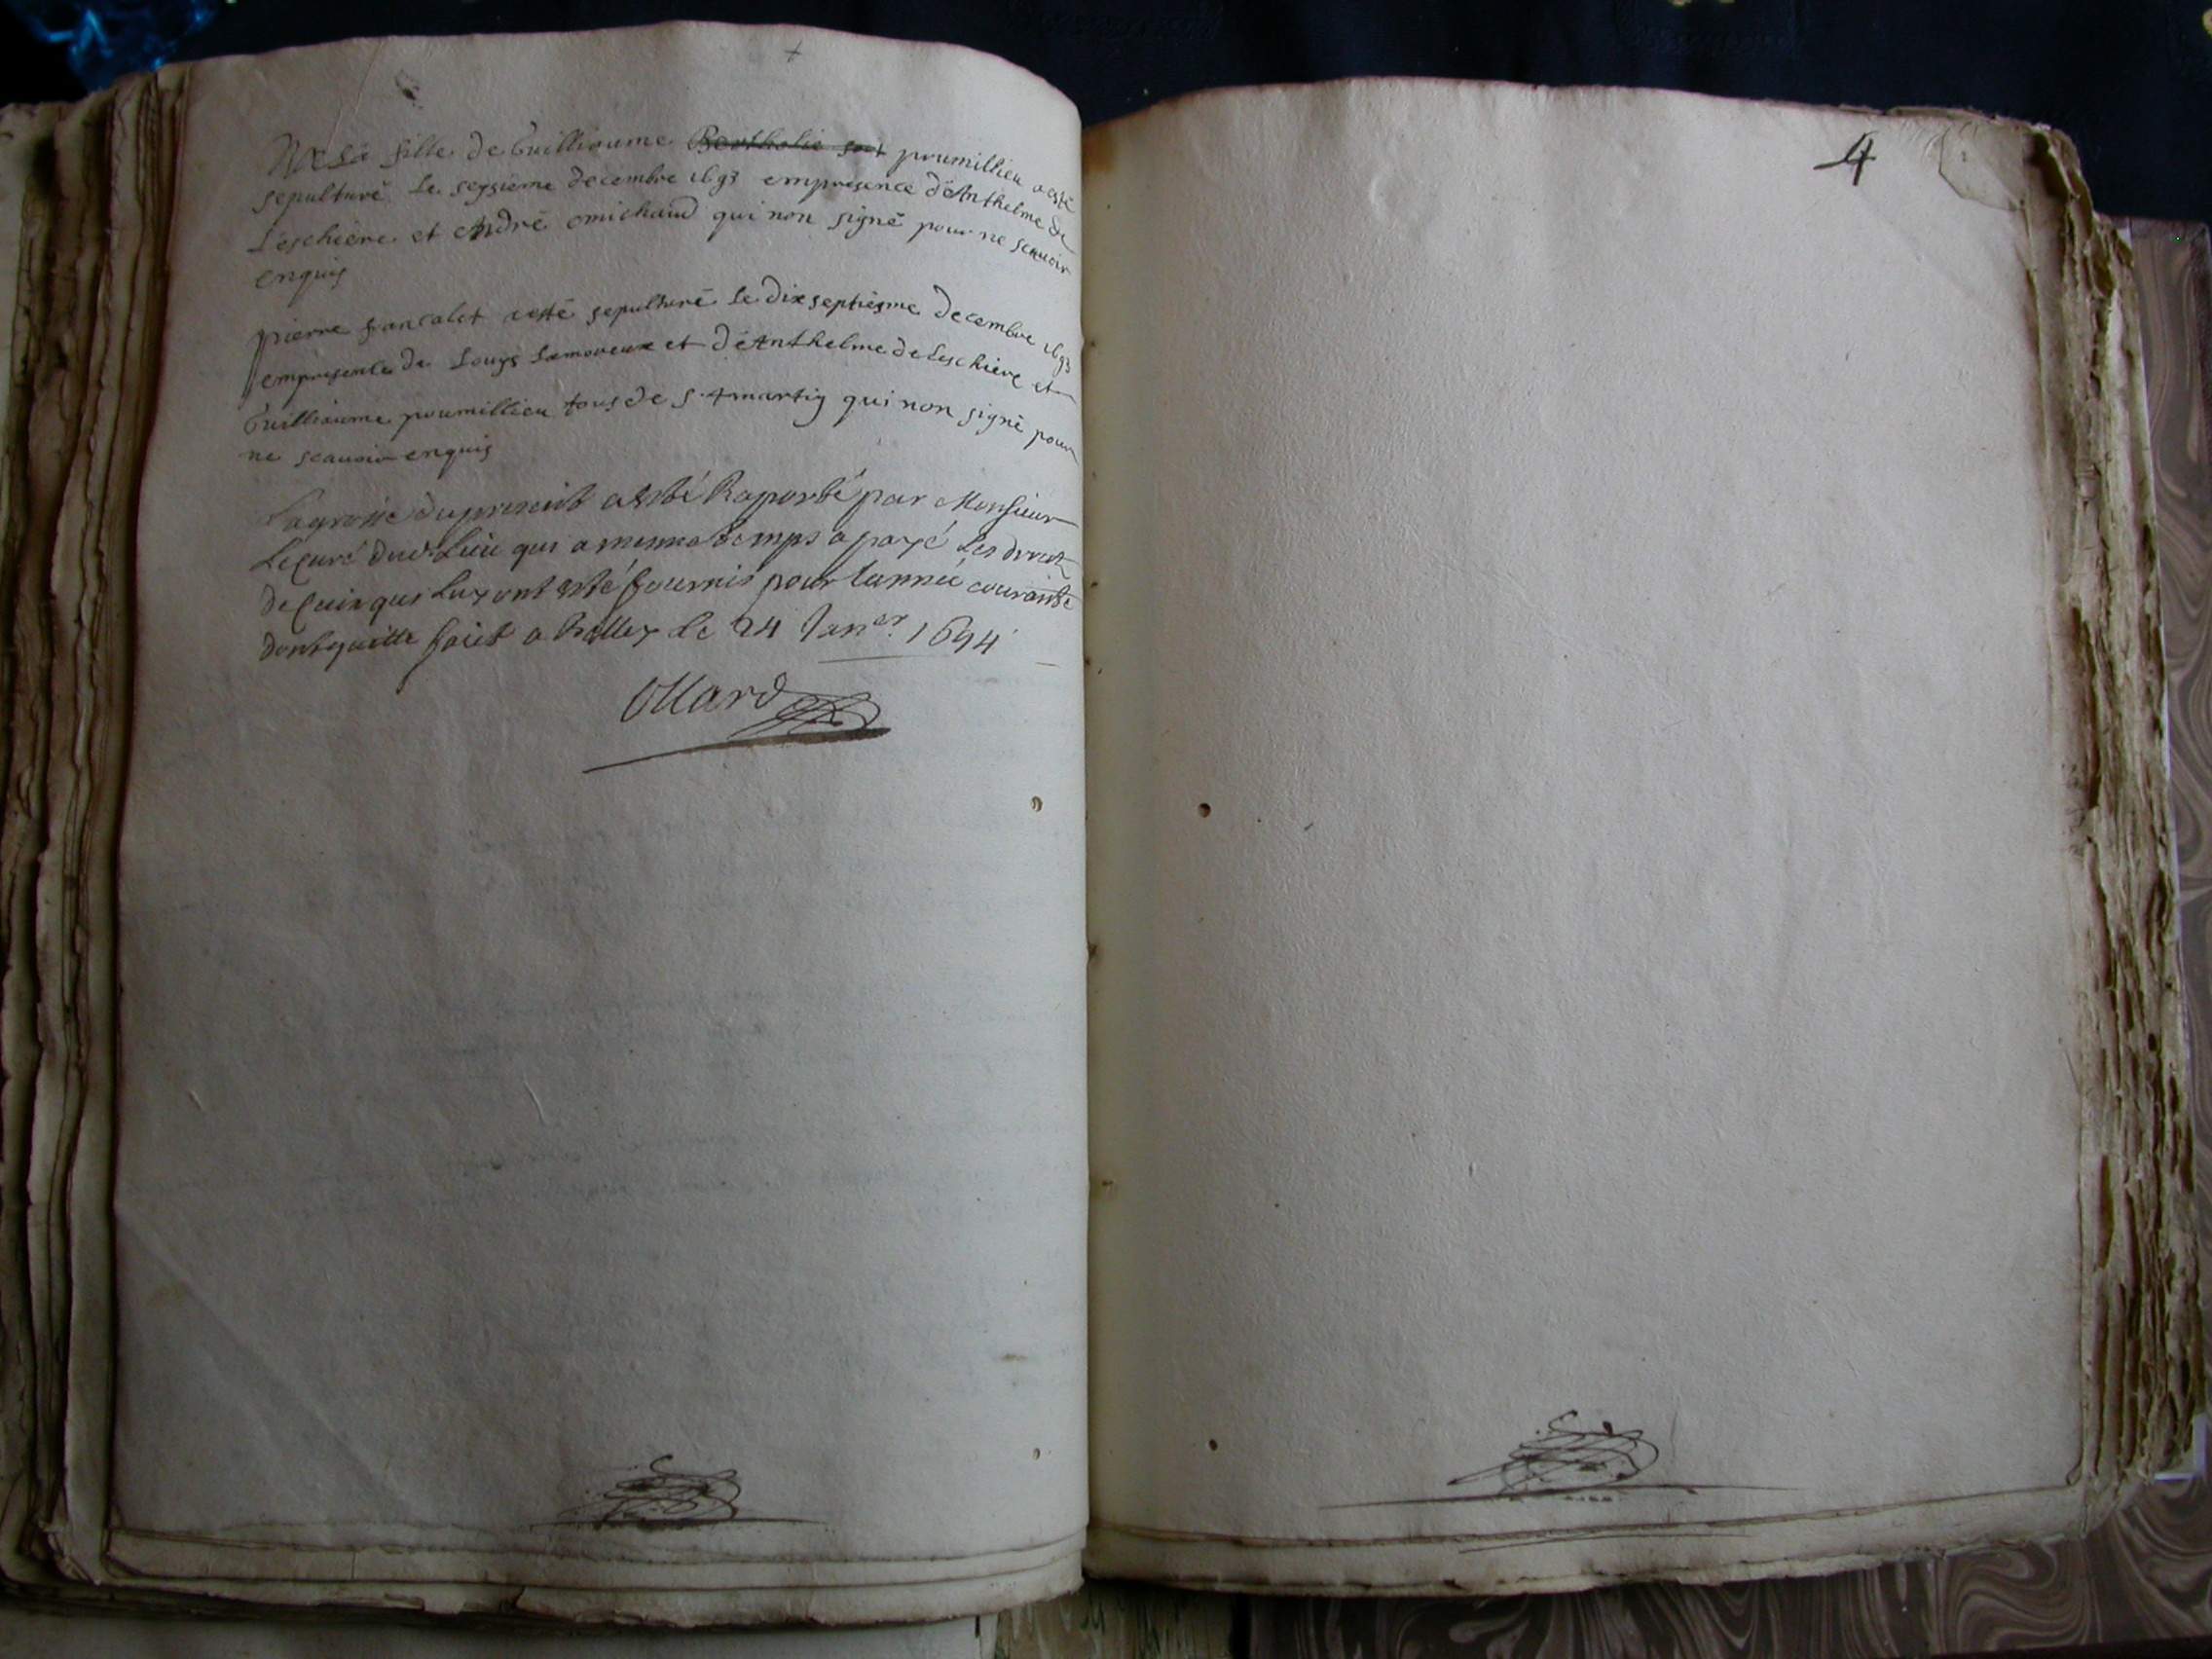 fille de Guilliaume Bertholie poumillieu a esté
sepulturé le seysieme decembre 1693 empresence d'Anthelme de
Leschiere et André michaud qui non signé pour ne scauoir
enquis
pierre francalet a esté sepulturé le dixseptiesme decembre 1693
empresence de Louys Lamoureux et d'Anthelme de Leschiere et
Guilliaume poumillieu tous de s.t martin qui non signé pour
ne scauoir enquis
La grosse du present a esté Raporté par Monsieur
Le Curé dud. Lieu qui a mesme temps a payé Les droit
de Ceux qui Luy ont esté fournis pour l'année courante
dont quitte fait a Belley Le 24 Jan.er 1694
Ollard
4